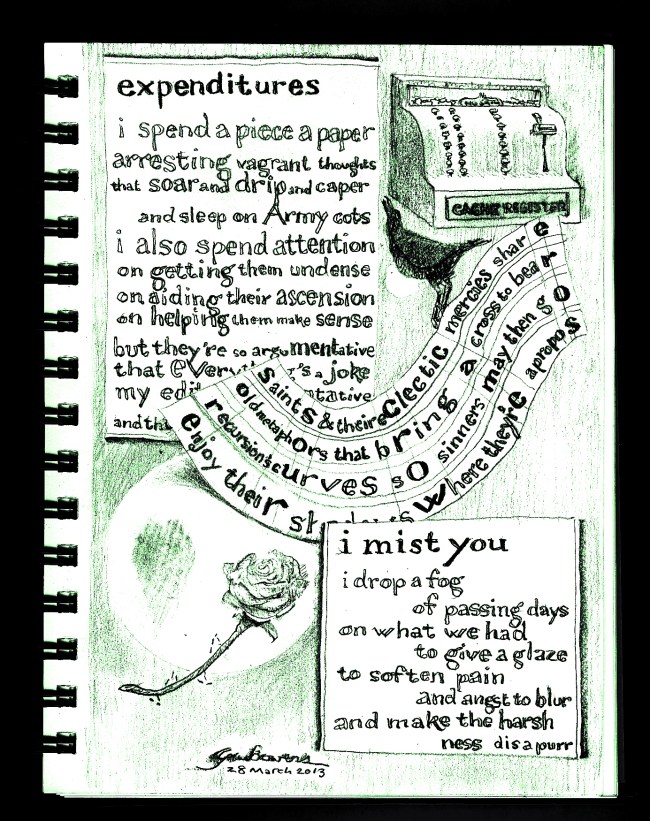 expenditures
i spend a piece a paper
arresting vagrant thoughts
that soar and drip and caper
and sleep on Army cots
i also spend attention
on getting them undense
on aiding their ascension
on helping them make sense
but they're so argumentative
that 's a joke
my
and
CACHE REGISTER
saints & their eclectic mercies share
old metaphors that bring a cross to bear
curves so sinners may then go
enjoy their where they're apropos
i mist you
i drop a fog
of passing days
on what we had
to give a glaze
to soften pain
and angst to blur
and make the harsh
ness disapurr
28 March 2013